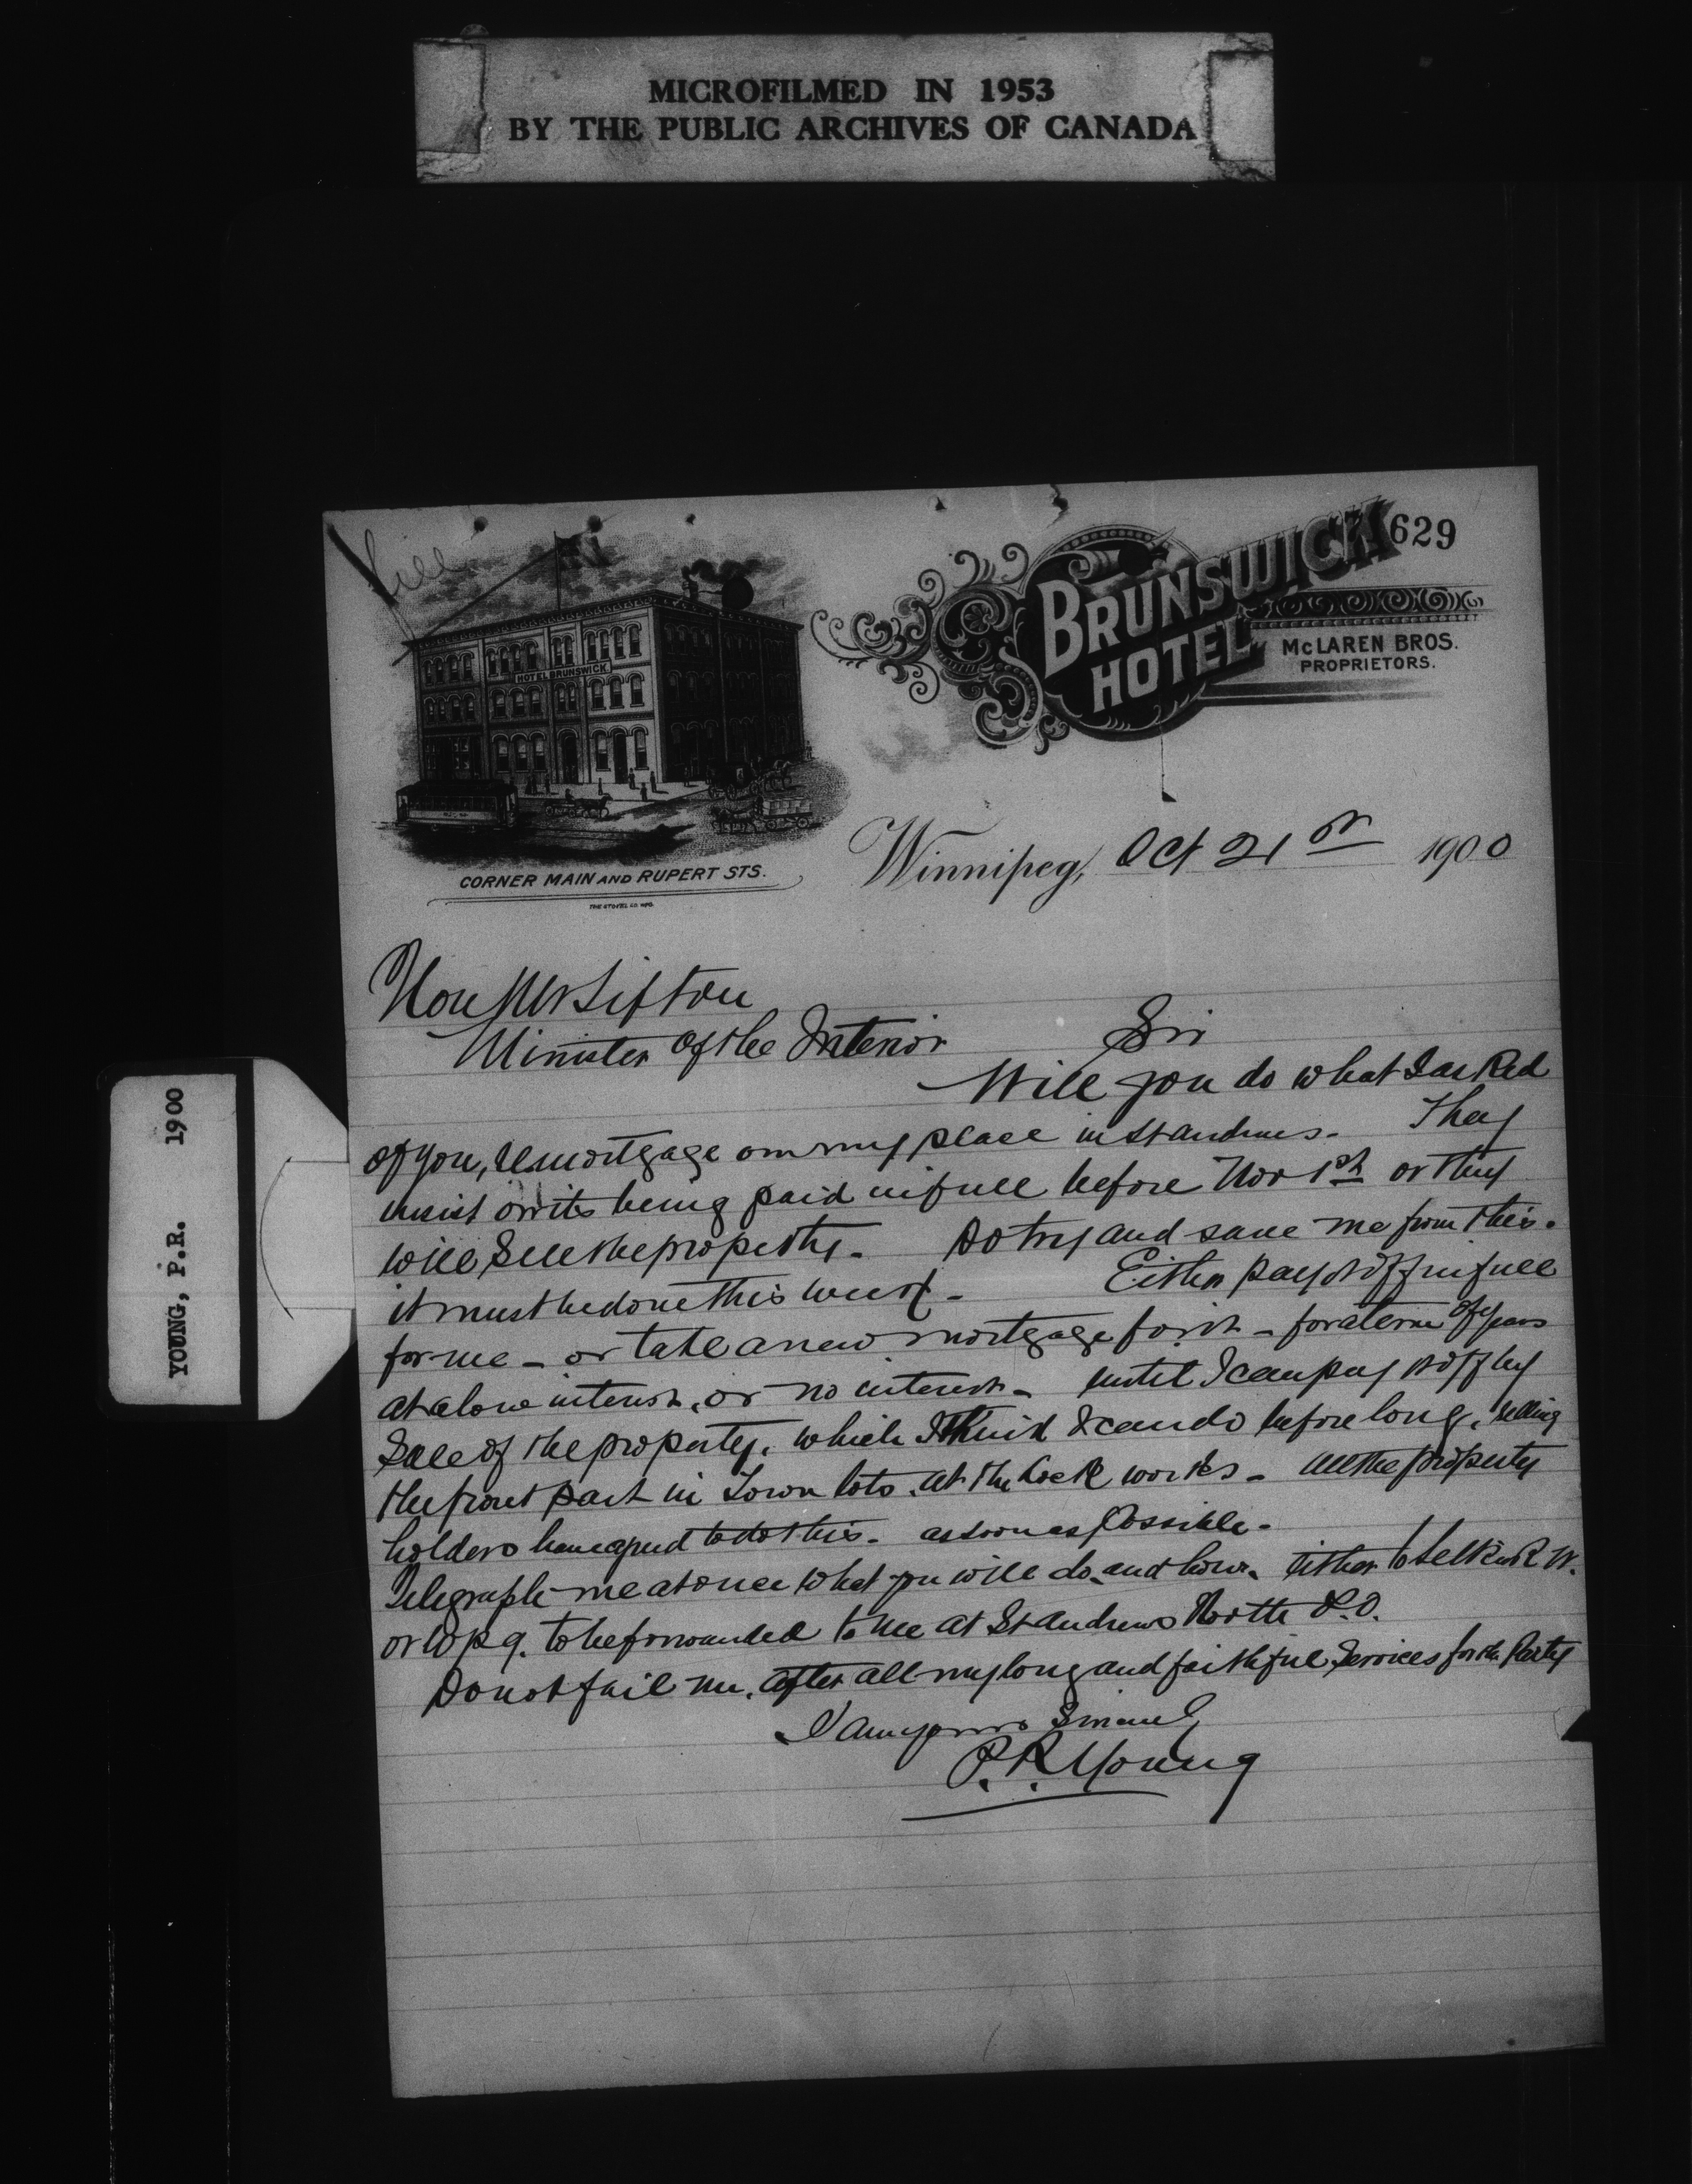 MICROFILMED IN 1953
BY THE PUBLIC ARCHIVES OF CANADA
YOUNG, P.R. 1900
629
HOTEL BRUNSWICK
BRUNSWICK
HOTEL
McLAREN BROS.
PROPRIETORS.
CORNER MAIN AND RUPERT STS.
Winnipeg, Oct 21st 1900
Hon Mr Sifton
Minister of the Interior Sir
Will you do what I asked
of you, re mortgage on my place in St Andrews. They
insist on its being paid in full before Nov 1st or they
will sell the property. Do try and save me from this.
it must be done this week - Either pay it off in full
for me - or take a new mortgage for it - for a term of years
at a low interest, or no interest - until I can pay it off by
Sale of the property. which I think I can do before long, selling
the front part in Town lots. at the Lock works - all the property
holders have agreed to do this. as soon as possible -
Telegraph me at once what you will do, and how. Either to Selkirk W.
or Wpg. to be forwarded to me at St Andrews North P.O.
Do not fail me. after all my long and faithful Services for the Party
I am yours Sincerely
P. R. Young